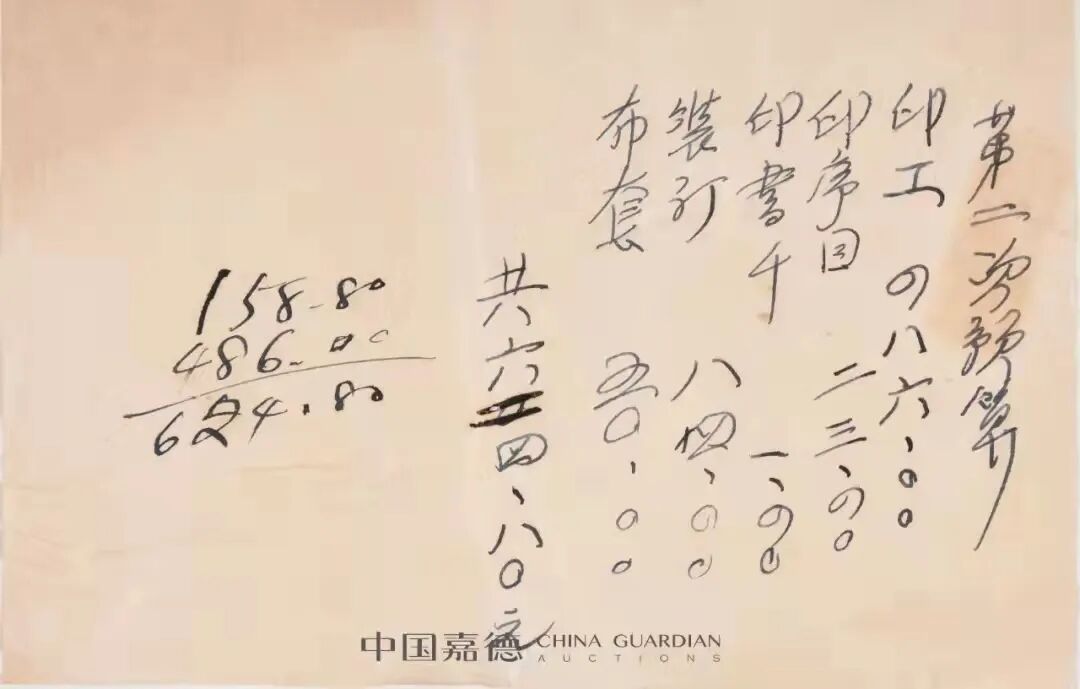 第二次預算
印工 四八六、〇〇
印序目 二三、四〇
印書千 一、四〇
裝訂 八四、〇〇
布套 五〇、〇〇
共六四、八〇元
158.80
486.00
624.80
中国嘉德 CHINA GUARDIAN
AUCTIONS